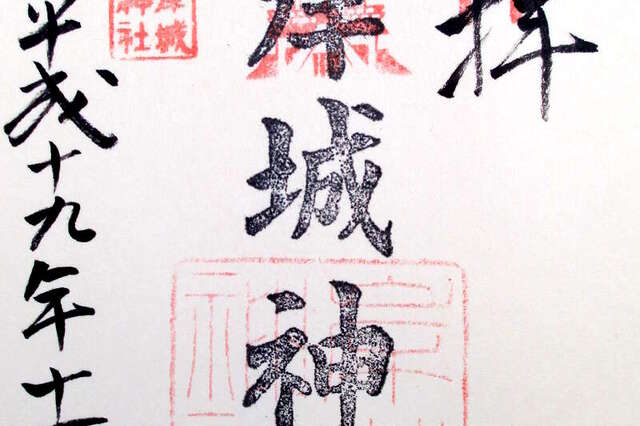 拝
城神
平成十九年十
城
神社